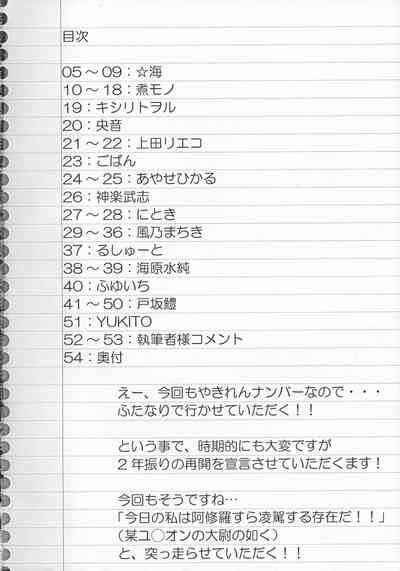 目次
05～09：☆海
10～18：煮モノ
19：キシリトヲル
20：央音
21～22：上田リエコ
23：ごばん
24～25：あやせひかる
26：神楽武志
27～28：にとき
29～36：風乃まちき
37：るしゅーと
38～39：海原水純
40：ふゆいち
41～50：戸坂鱧
51：YUKITO
52～53：執筆者様コメント
54：奥付
えー、今回もやきれんナンバーなので・・・
ふたなりで行かせていただく！！
という事で、時期的にも大変ですが
２年振りの再開を宣言させていただくます！
今回もそうですね…
「今日の私は阿修羅すら凌駕する存在だ！！」
（某ユ○オンの大尉の如く）
と、突っ走らせていただく！！